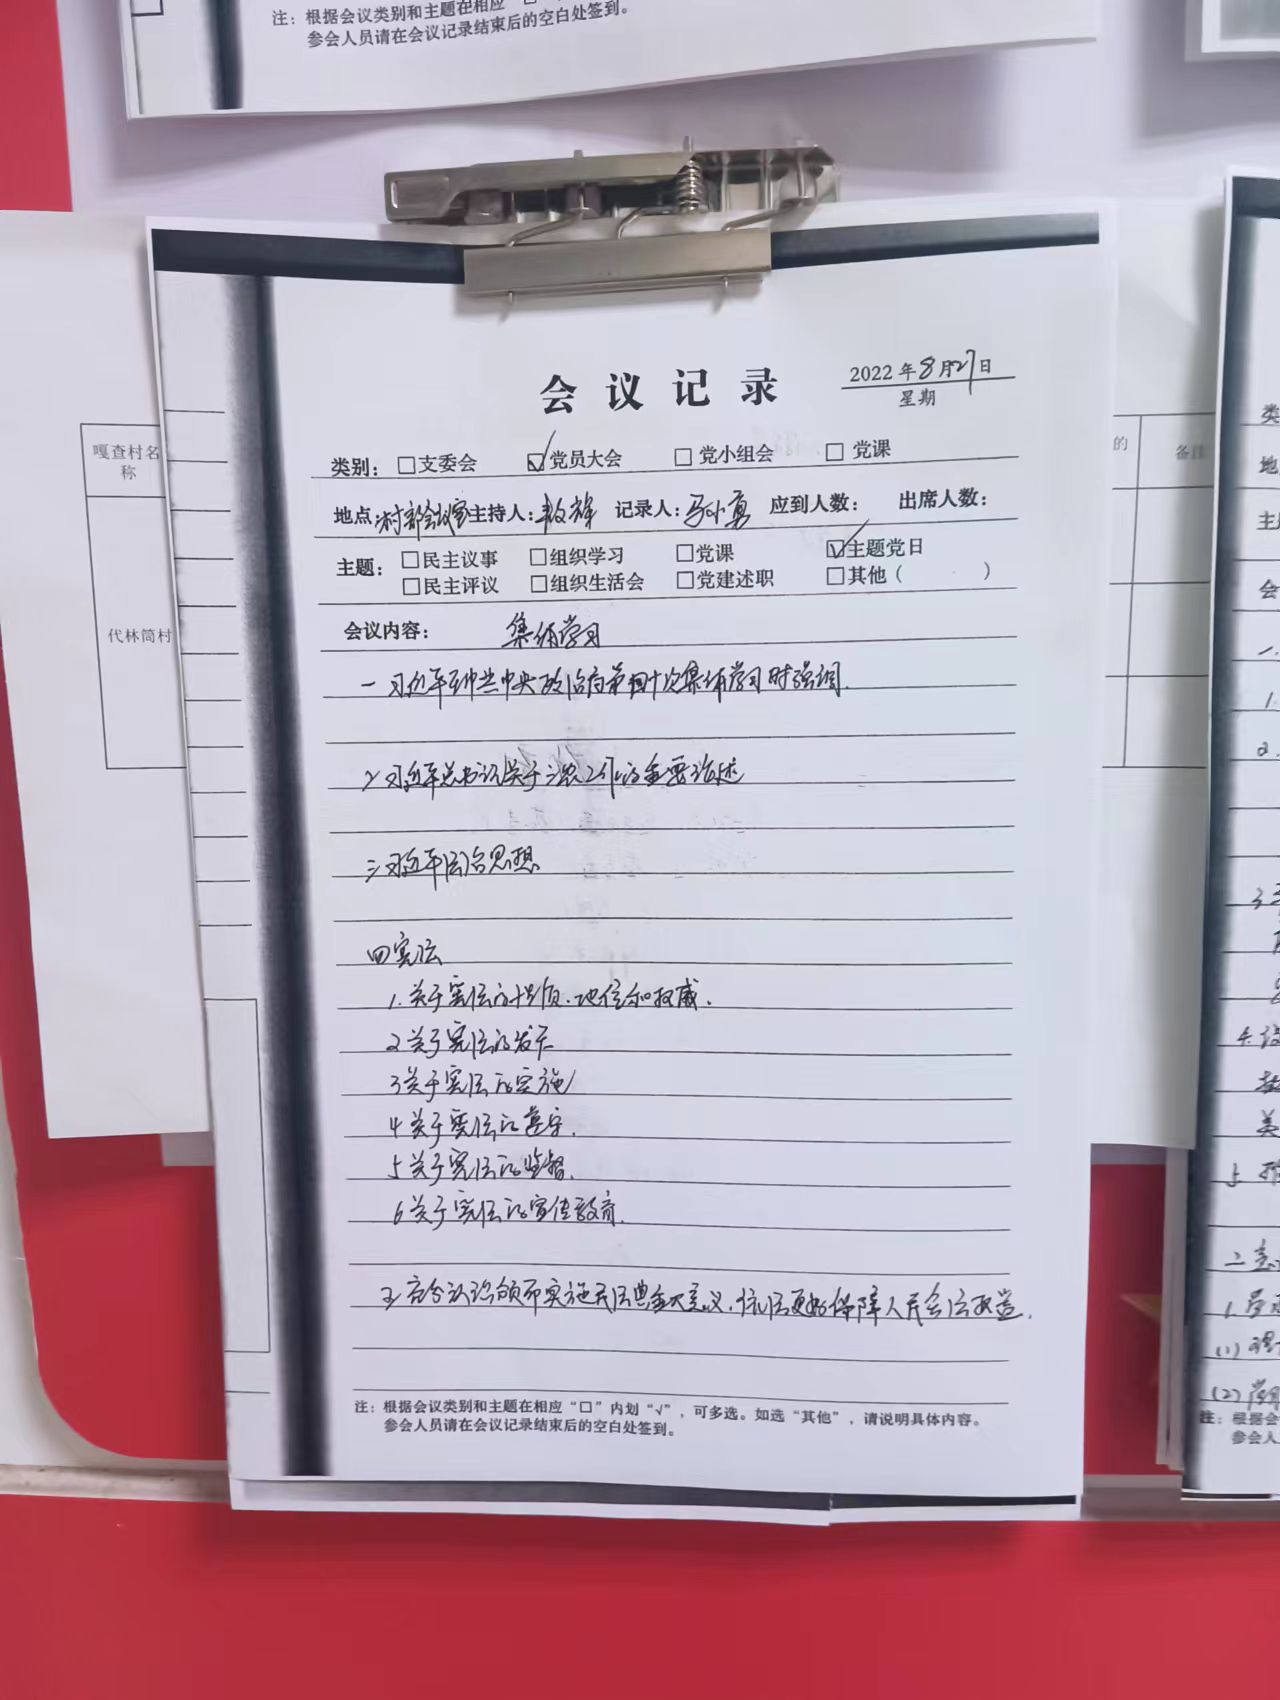 注：根据会议类别和主题在相应
参会人员请在会议记录结束后的空白处签到。
嘎查村名称
代林筒村
的
备注
会议记录
2022年8月27日
星期
类别：□支委会 ☑党员大会 □党小组会 □党课
地点：村部会议室 主持人： 记录人： 应到人数： 出席人数：
主题：□民主议事 □组织学习 □党课 ☑主题党日
□民主评议 □组织生活会 □党建述职 □其他（ ）
会议内容： 集体学习
一 习近平在中共中央政治局第四十次集体学习时强调.
二、习近平总书记关于三农工作的重要论述
三、习近平法治思想
四 宪法
1.关于宪法的性质、地位和权威.
2 关于宪法的发展
3 关于宪法的实施
4 关于宪法的遵守.
5 关于宪法的监督.
6 关于宪法的宣传教育.
五、充分认识颁布实施民法典重大意义,依法更好保障人民合法权益.
注：根据会议类别和主题在相应“□”内划“√”，可多选。如选“其他”，请说明具体内容。
参会人员请在会议记录结束后的空白处签到。